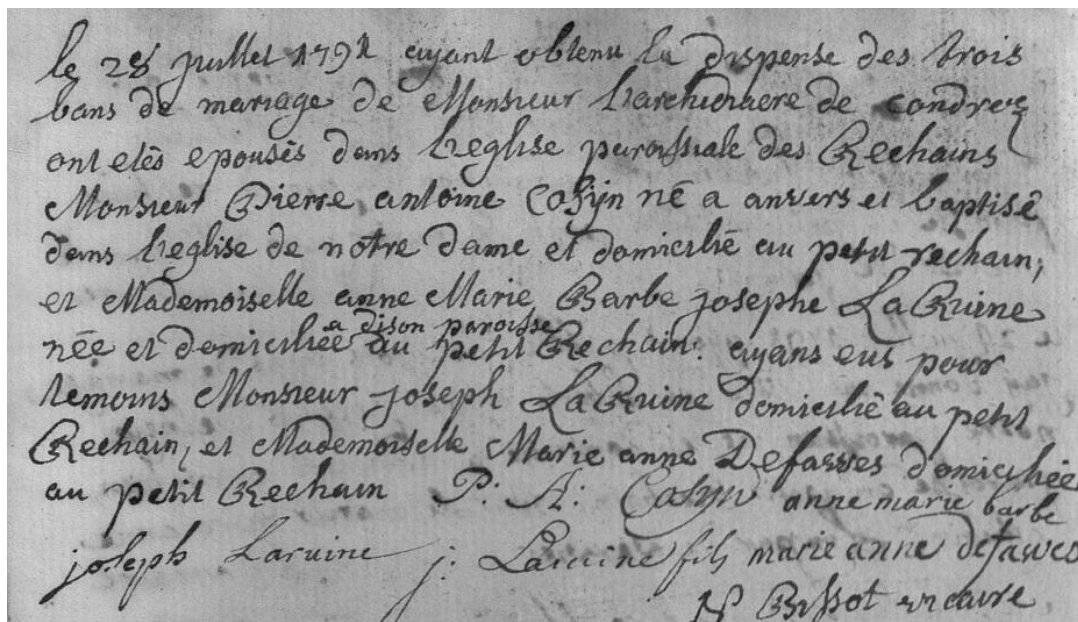 le 28 juillet 1791 ayant obtenu la dispense des trois
bans de mariage de Monsieur L'archidiacre de condroz
ont etés epousés dans L'eglise paroissiale des Rechains
Monsieur Pierre antoine Cosijn né a anvers et baptisé
dans L'eglise de notre dame et domicilié au petit rechain,
et Mademoiselle anne Marie Barbe josephe LaRuine
a dison paroisse
née et domiciliée au petit Rechain. ayans eus pour
temoins Monsieur joseph LaRuine domicilié au petit
Rechain, et Mademoiselle Marie anne Defawes domiciliée
au petit Rechain P: A: Cosijn anne marie barbe
joseph Laruine j: Laruine fils marie anne defawes
Bissot vicaire